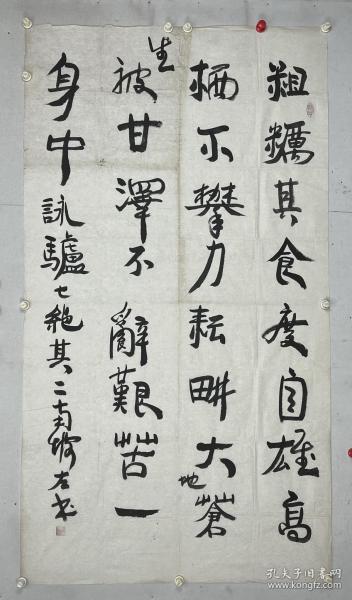 粗糲其食度自雄高
栖不攀力耘畊大地蒼
生被甘澤不辭艱苦一
身中詠驢七絕其二左书
孔夫子旧书网
www.kongfz.com